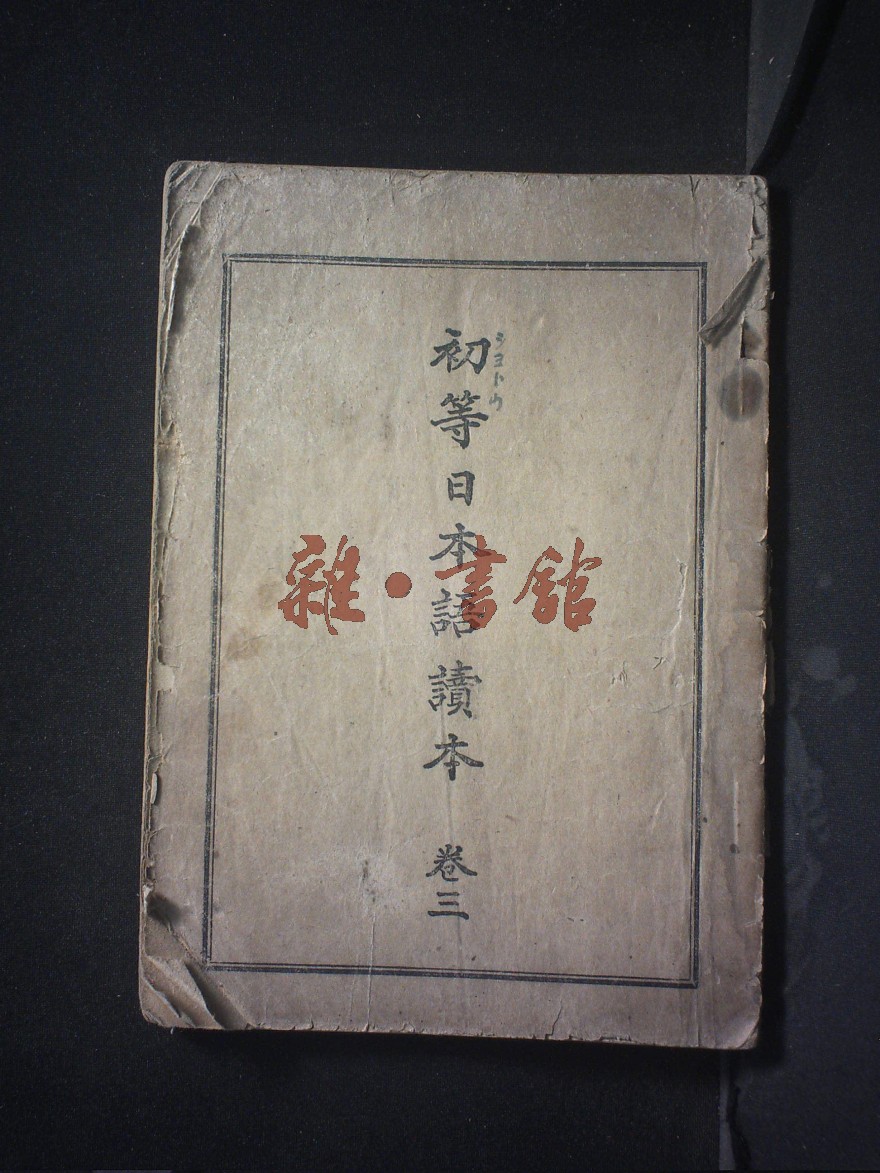 初等日本語讀本 卷三
シヨトウ
雜·書館